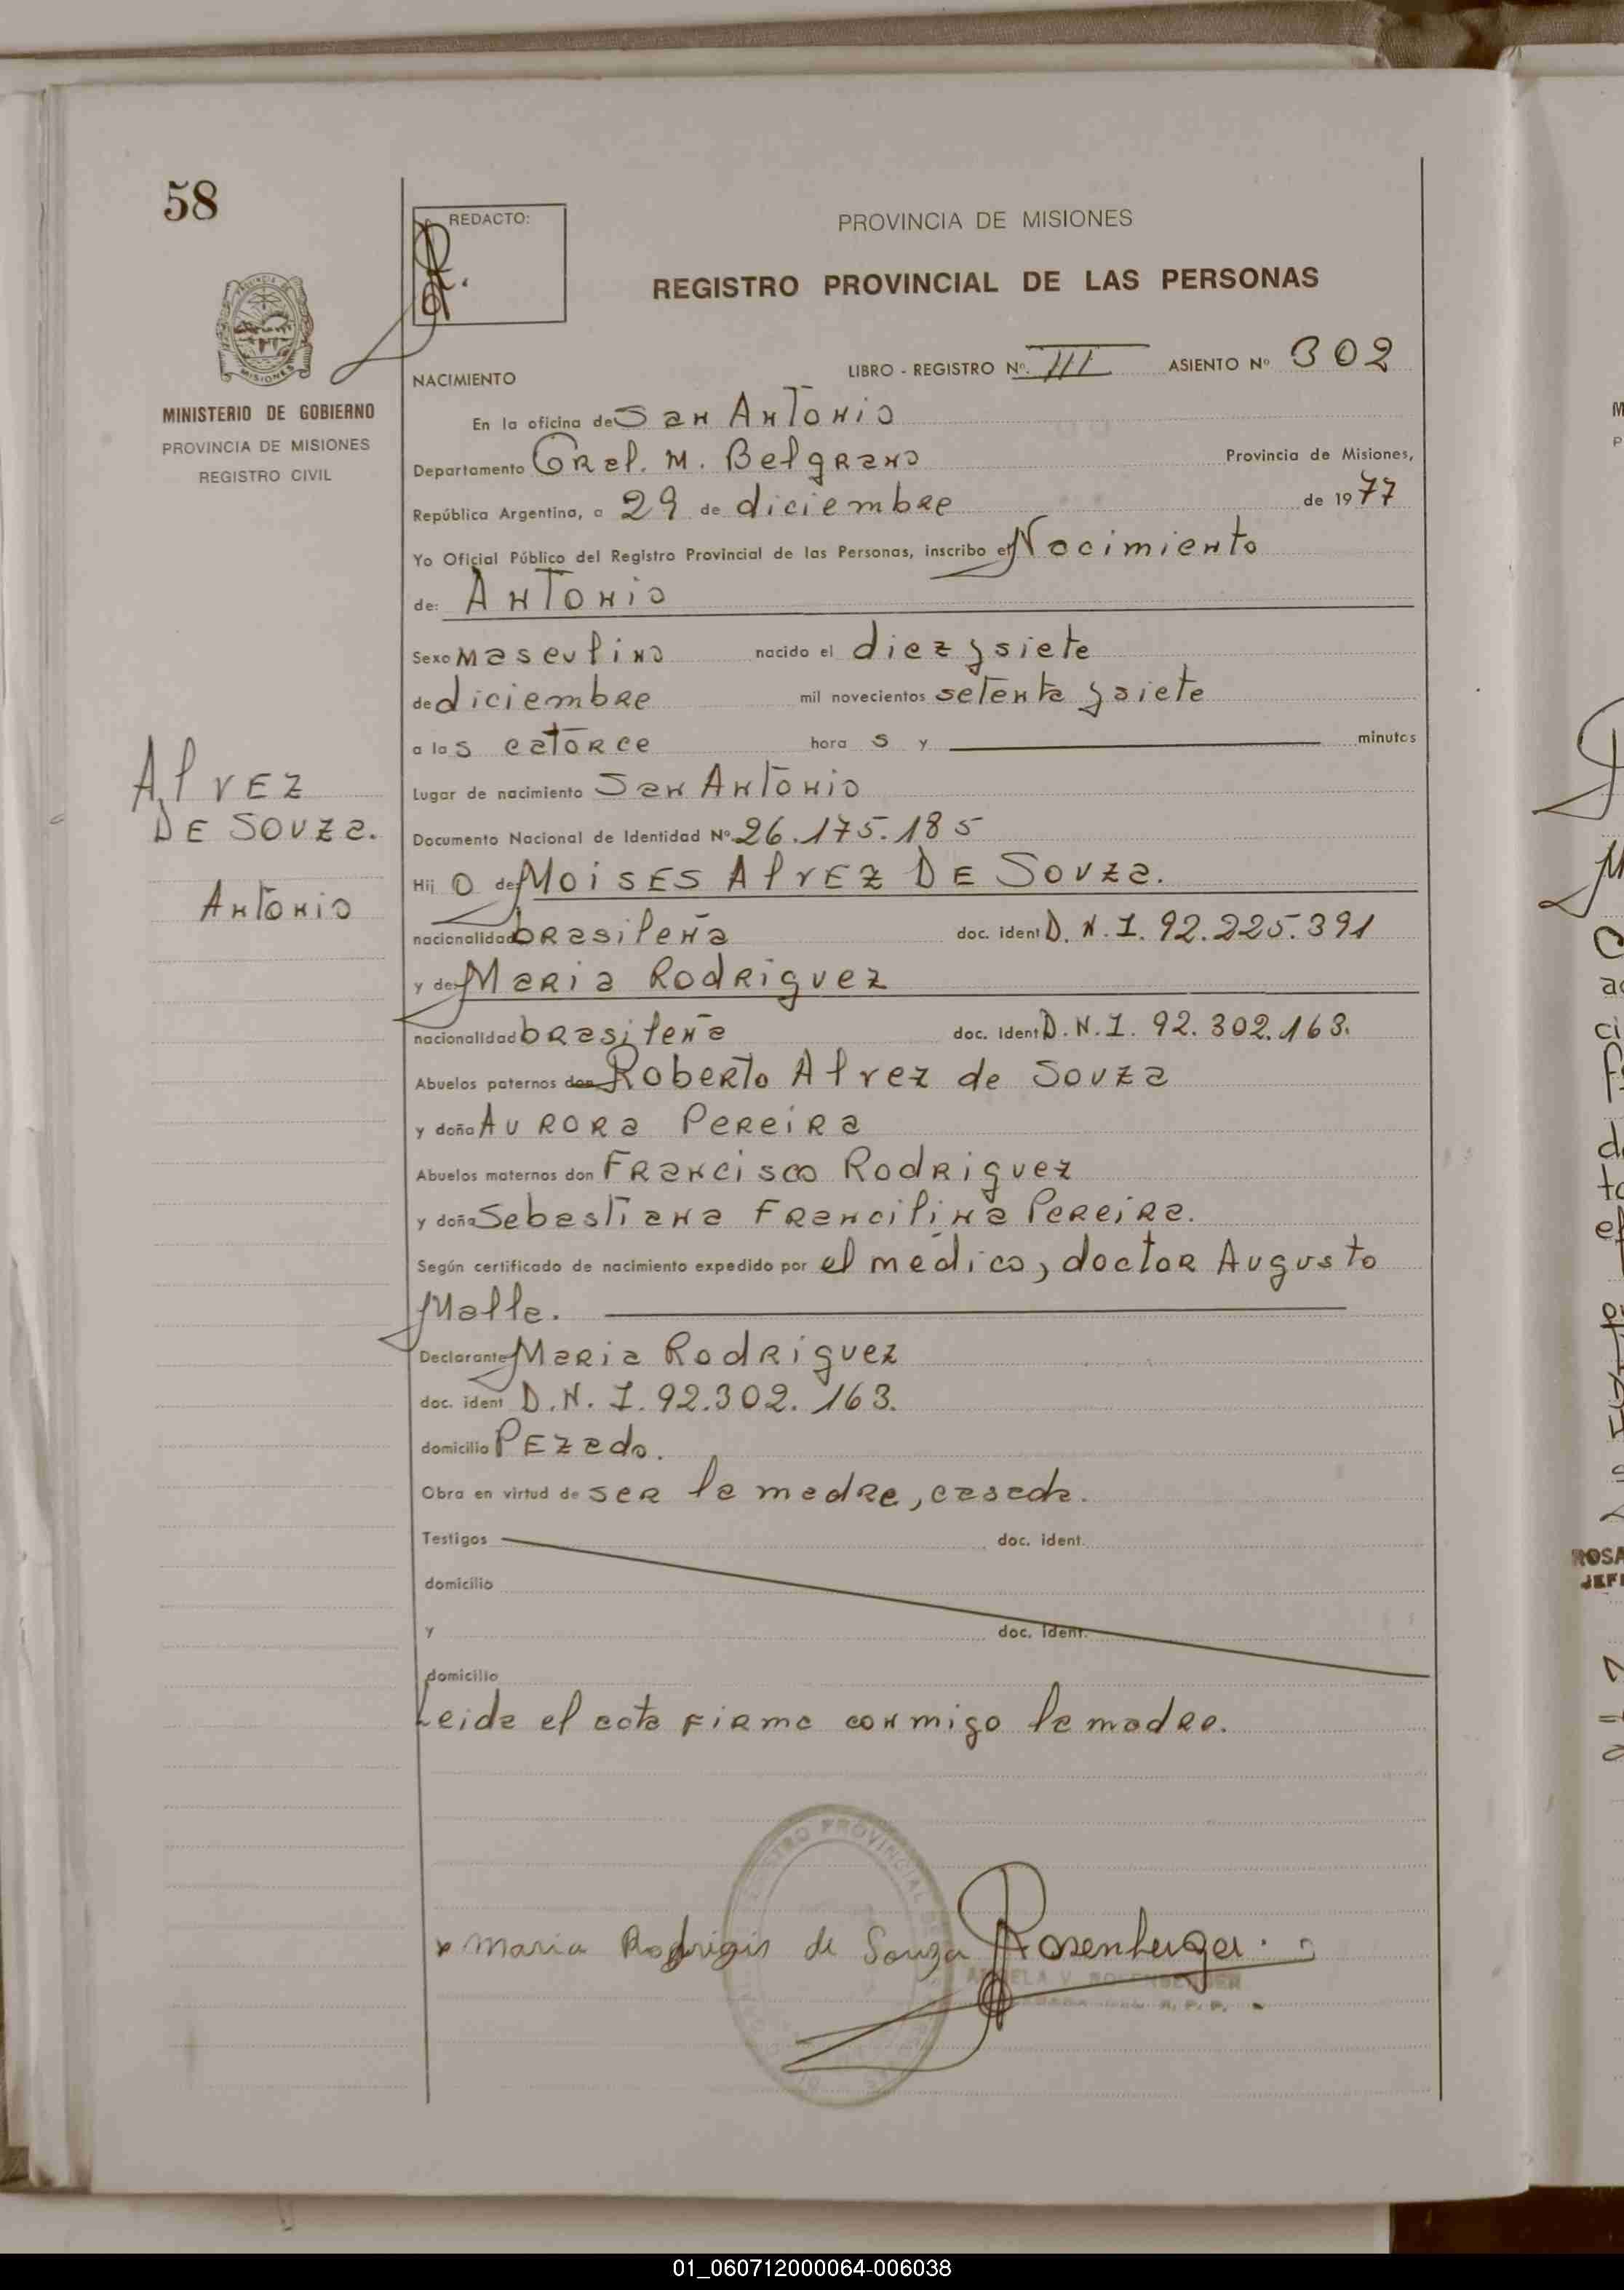 58
REDACTO:
PROVINCIA DE MISIONES
REGISTRO PROVINCIAL DE LAS PERSONAS
MISIONES
MINISTERIO DE GOBIERNO
PROVINCIA DE MISIONES
REGISTRO CIVIL
NACIMIENTO
LIBRO - REGISTRO Nº. III ASIENTO Nº 302
En la oficina de San Antonio
Departamento Gral. M. Belgrano Provincia de Misiones,
República Argentina, a 29 de diciembre de 1977
Yo Oficial Público del Registro Provincial de las Personas, inscribo el Nacimiento
de: Antonio
Sexo masculino nacido el diez y siete
de diciembre mil novecientos setenta y siete
a las catorce hora s y minutos
Lugar de nacimiento San Antonio
Documento Nacional de Identidad Nº 26.175.185
Alvez
De Souza.
Antonio
Hij o de: Moises Alvez De Souza.
nacionalidad brasileña doc. ident D.N.I. 92.225.391
y de: Maria Rodriguez
nacionalidad brasileña doc. ident D.N.I. 92.302.163.
Abuelos paternos don Roberto Alvez de Souza
y doña Aurora Pereira
Abuelos maternos don Francisco Rodriguez
y doña Sebastiana Francilina Pereira.
Según certificado de nacimiento expedido por el médico, doctor Augusto
Malla.
Declarante Maria Rodriguez
doc. ident D.N.I. 92.302.163.
domicilio Pezado.
Obra en virtud de ser la madre, casada.
Testigos doc. ident.
domicilio
y doc. ident.
domicilio
Leida el acta firma conmigo la madre.
x Maria Rodrigis de Souza Rosenberger.
01_060712000064-006038